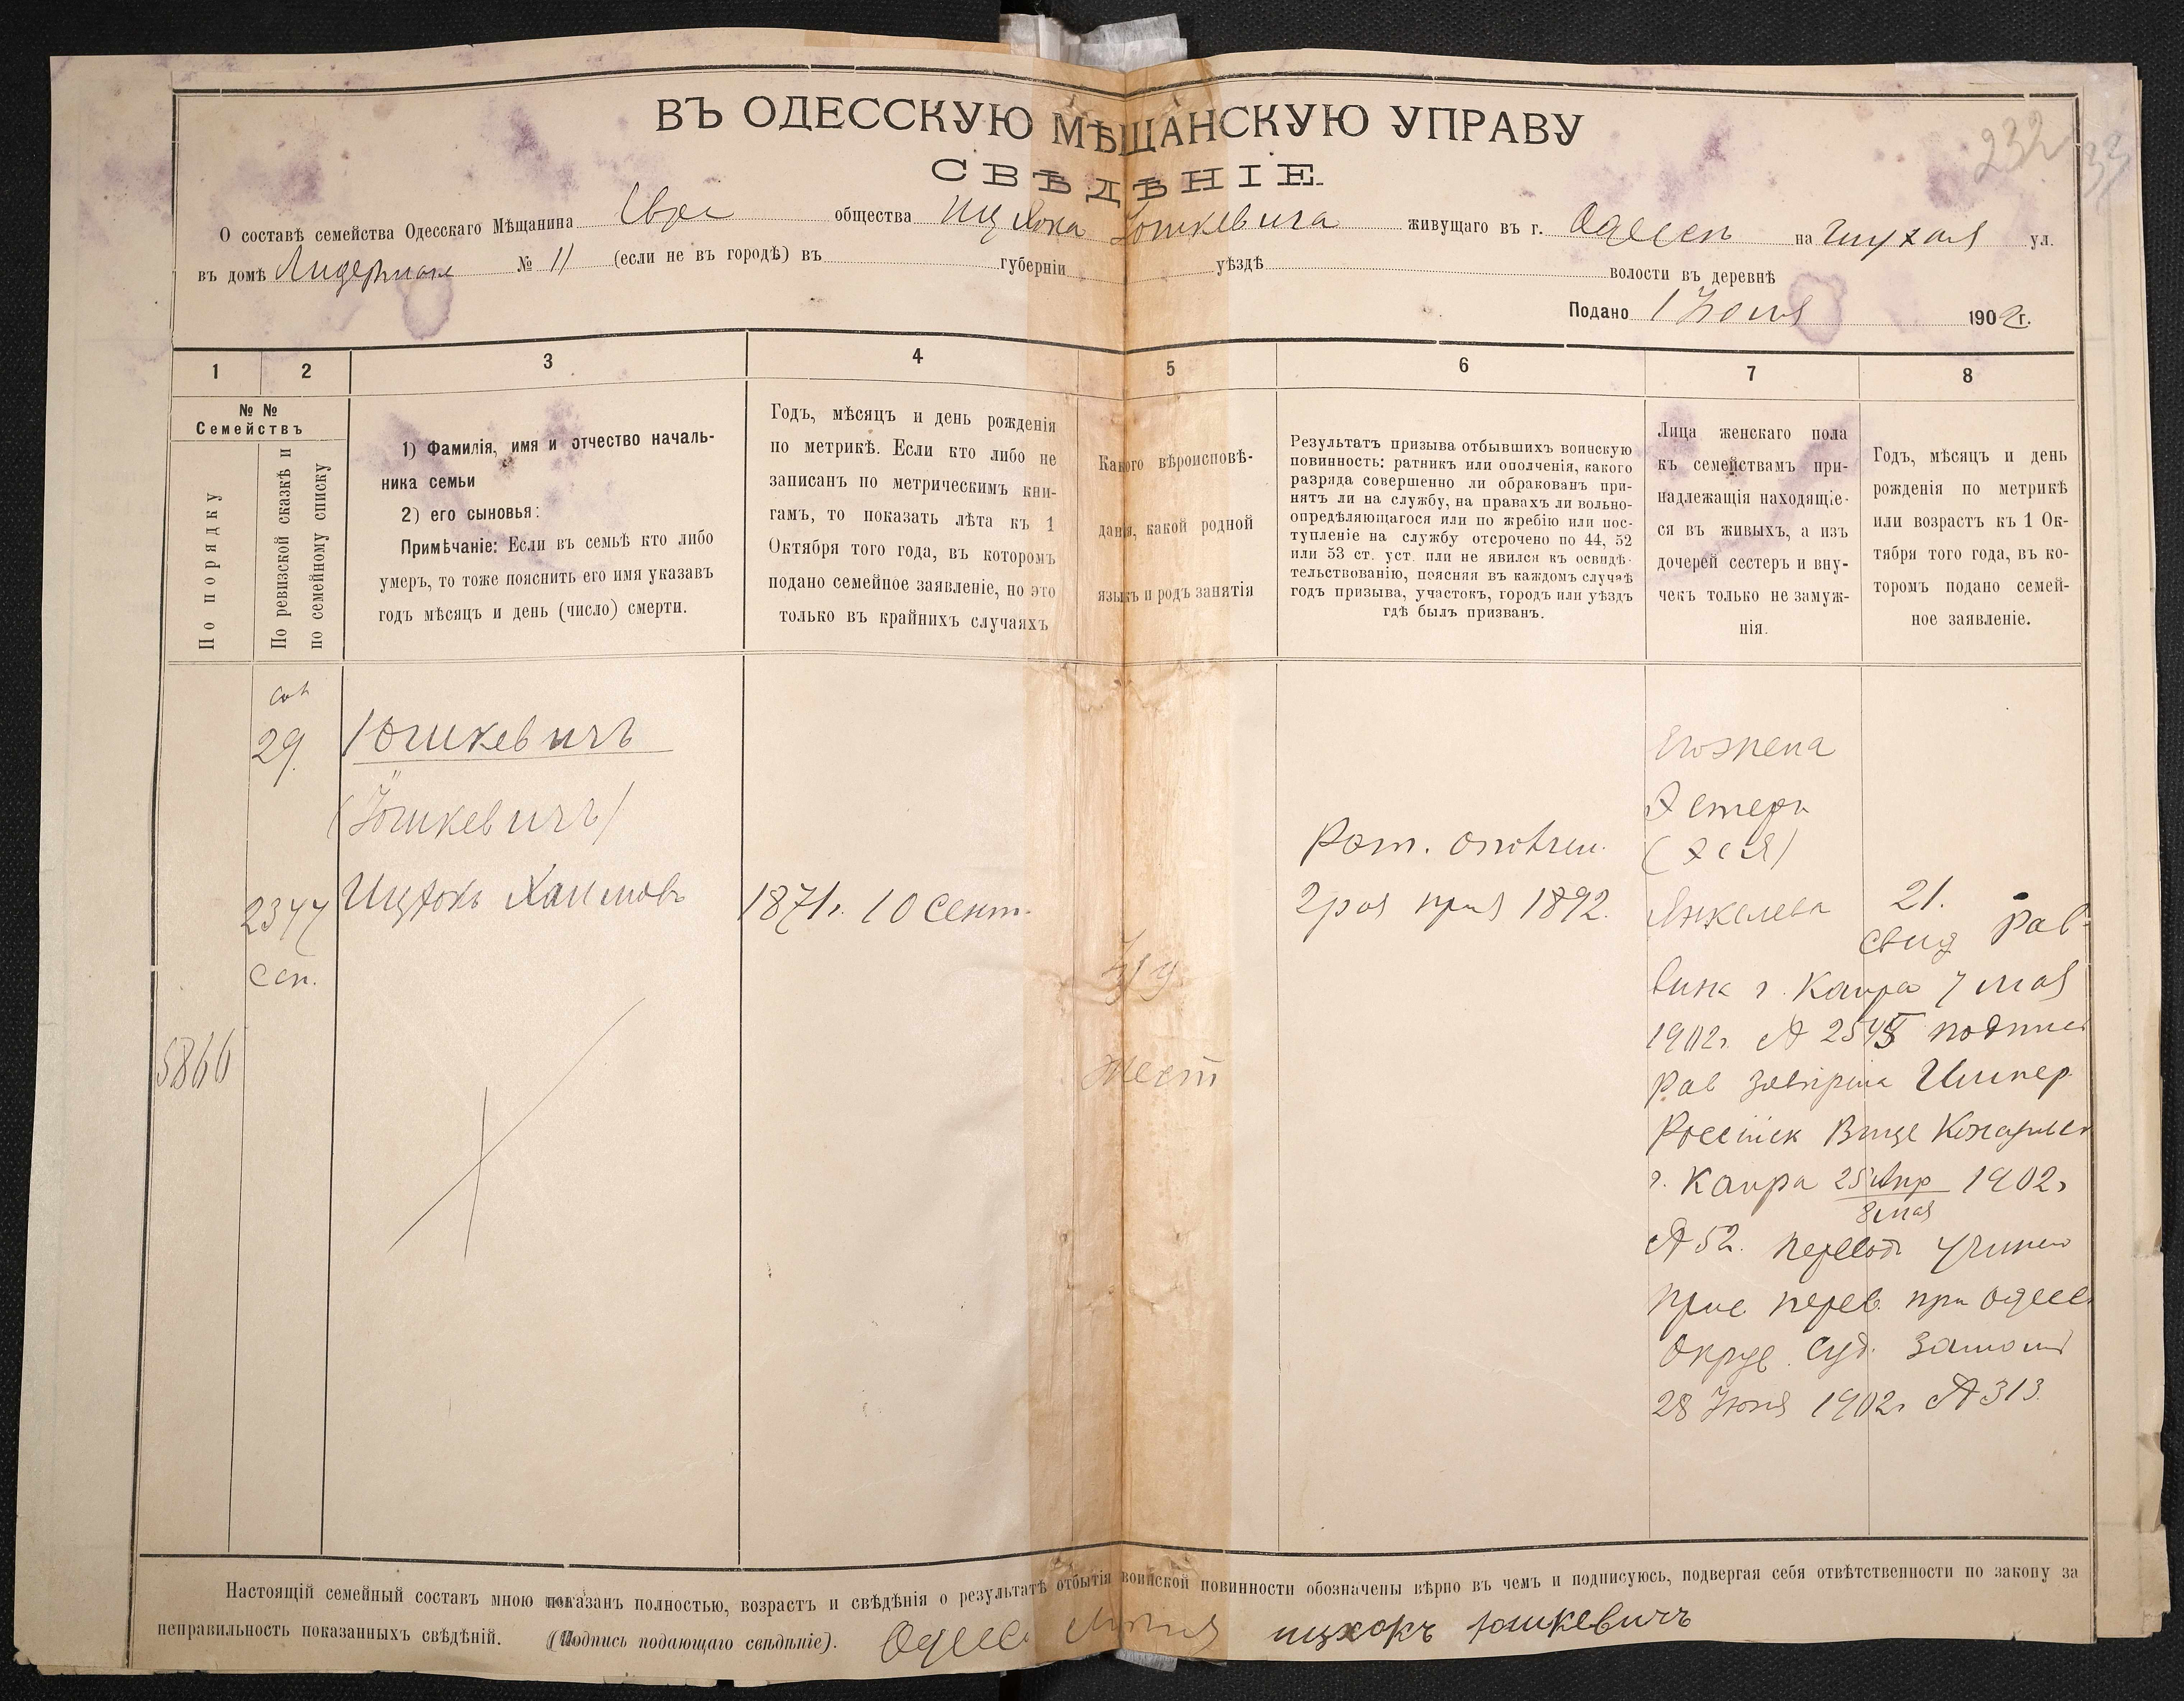 ВЪ ОДЕССКУЮ МѢЩАНСКУЮ УПРАВУ
СВѢДѢНІЕ.
232
33
О составѣ семейства Одесскаго Мѣщанина Евре общества Ицхока Іошкевича живущаго въ г. Одессѣ на Глухая ул.
въ домѣ № 11 (если не въ городѣ) въ губерніи уѣздѣ волости въ деревнѣ
Подано 1 Июля 1902 г.
1 2 3 4 5 6 7 8
№ № Семействъ
По порядку
По ревизской сказкѣ и по семейному списку
1) Фамилія, имя и отчество началь-
ника семьи
2) его сыновья:
Примѣчаніе: Если въ семьѣ кто либо
умеръ, то тоже пояснить его имя указавъ
годъ мѣсяцъ и день (число) смерти.
Годъ, мѣсяцъ и день рожденія
по метрикѣ. Если кто либо не
записанъ по метрическимъ кни-
гамъ, то показать лѣта къ 1
Октября того года, въ которомъ
подано семейное заявленіе, но это
только въ крайнихъ случаяхъ
Какого вѣроисповѣ-
данія, какой родной
языкъ и родъ занятія
Результатъ призыва отбывшихъ воинскую
повинность: ратникъ или ополченія, какого
разряда совершенно ли обракованъ при-
нятъ ли на службу, на правахъ ли вольно-
опредѣляющагося или по жребію или пос-
тупленіе на службу отсрочено по 44, 52
или 53 ст. уст. или не явился къ освидѣ-
тельствованію, поясняя въ каждомъ случаѣ
годъ призыва, участокъ, городъ или уѣздъ
гдѣ былъ призванъ.
Лица женскаго пола
къ семействамъ при-
надлежащія находящіе-
ся въ живыхъ, а изъ
дочерей сестеръ и вну-
чекъ только не замуж-
нія.
Годъ, мѣсяцъ и день
рожденія по метрикѣ
или возрастъ къ 1 Ок-
тября того года, въ ко-
торомъ подано семей-
ное заявленіе.
29
Юшкевичъ
(Іошкевичъ)
2377 Ицхокъ Хаимовъ
сп.
5866
1871г. 10 Сент.
Іуд
Жест
Рат. ополчен.
2 раз приз 1892.
Его жена
Эстеръ
(Эся)
Янкелева 21.
свид Рав-
вина г. Каира 7 мая
1902г. № подпис
Рав завѣрена Импер
Россійск Вице Консульст
г. Каира 25 Апр 1902г
8 мая
№ 52. перевод учинен
прис перев. при Одесс
Округ. Суд.
28 Июня 1902г № 313.
Настоящій семейный составъ мною показанъ полностью, возрастъ и свѣдѣнія о результатѣ отбытія воинской повинности обозначены вѣрно въ чемъ и подписуюсь, подвергая себя отвѣтственности по закону за
неправильность показанныхъ свѣдѣній. (Подпись подающаго свѣдѣніе). ицхокъ юшкевичъ